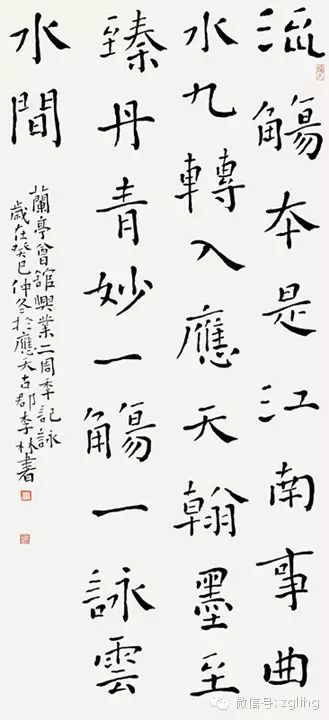 流觴本是江南事曲
水九轉入應天翰墨至
臻丹青妙一觴一詠雲
水間
蘭亭會舘興業二周季記詠
歲在癸巳仲冬於應天古郡李林書
微信号: zglihg